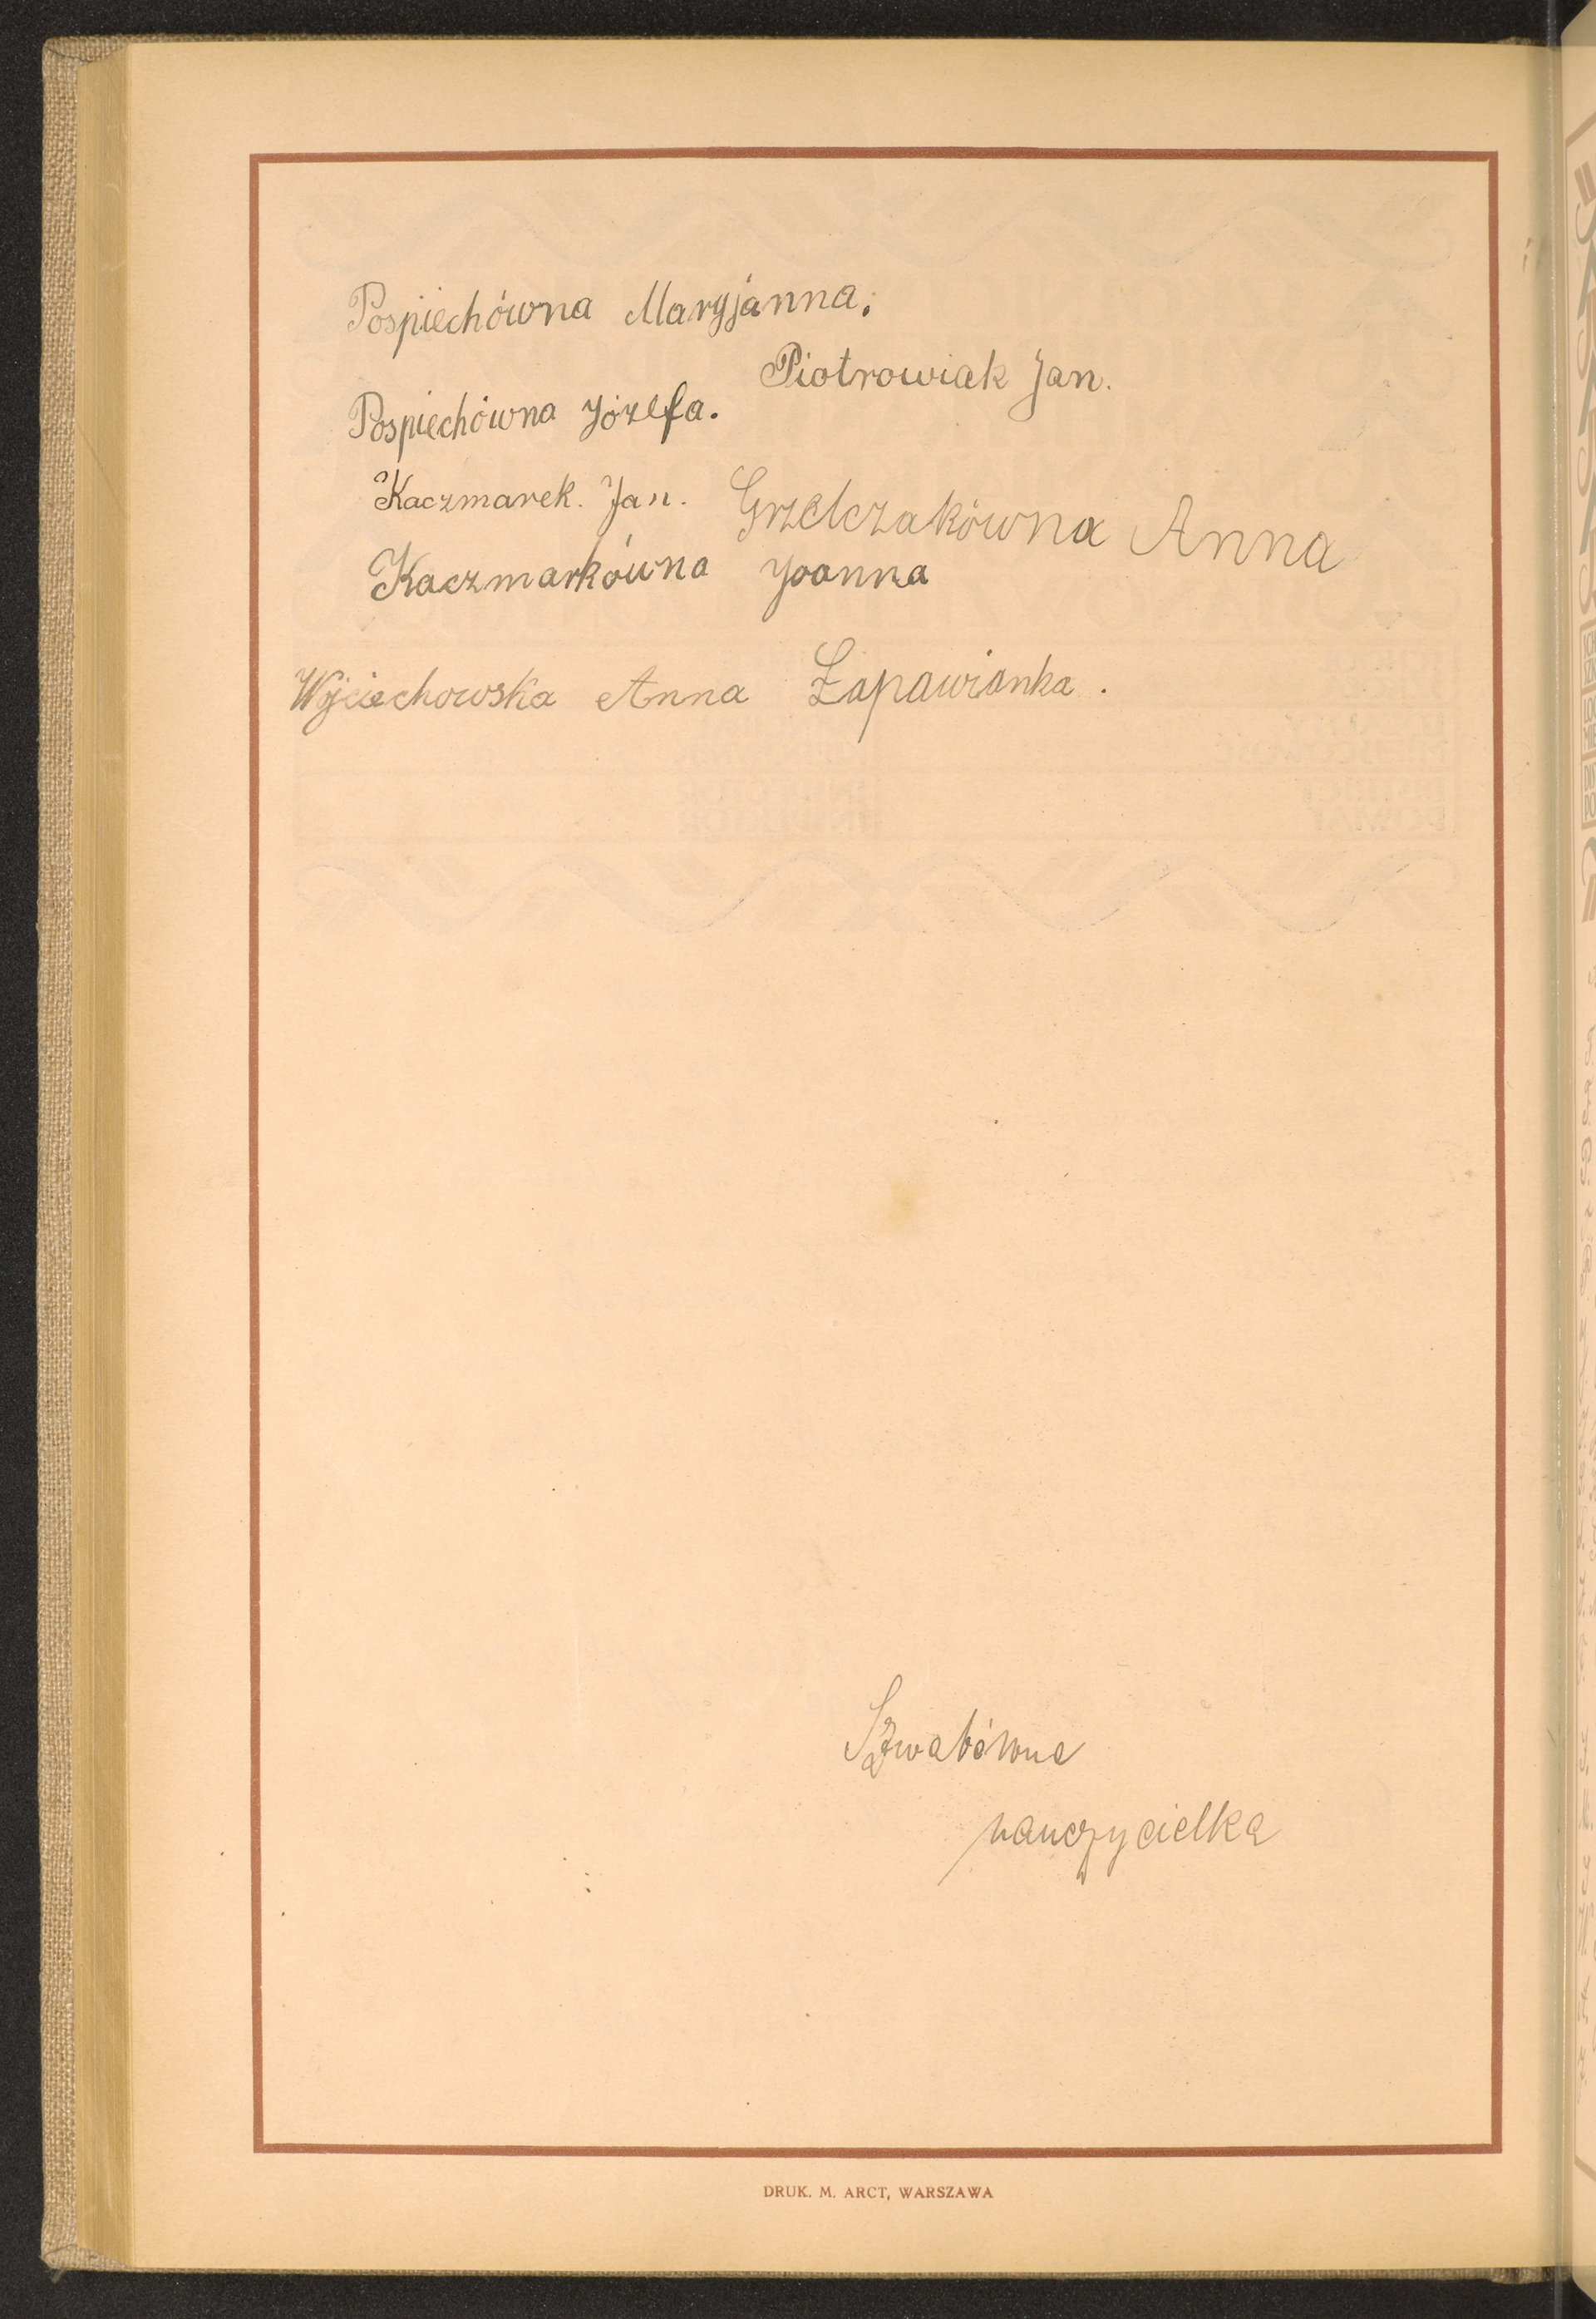 Pospiechówna Maryjanna.
Piotrowiak Jan.
Pospiechówna Józefa.
Kaczmarek. Jan. Grzelczakówna Anna
Kaczmarkówna Joanna
Wojciechowska Anna Łapawianka.
Szwabówna
nauczycielka
DRUK. M. ARCT, WARSZAWA